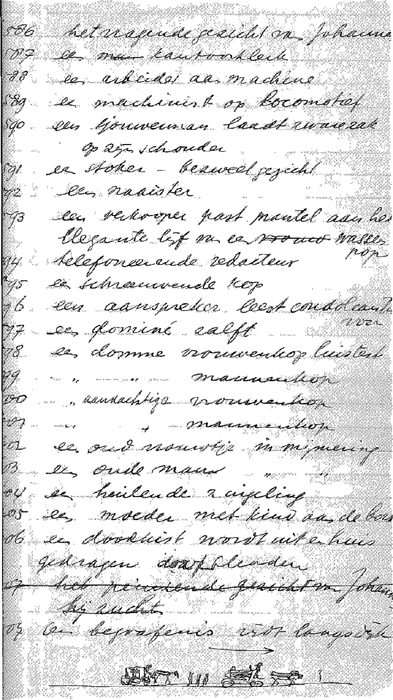 586 het vragende gezicht van Johanna
587 een man kantoorklerk
588 een arbeider aan machine
589 een machinist op locomotief
590 een sjouwerman laadt zware zak
op zijn schouder
591 een stoker – bezweet gezicht
92 een naaister
93 een verkooper past mantel aan het
Elegante lijf van een vrouw wasse
pop
94 telefoneerende redacteur
95 een schreeuwende kop
96 een aanspreker leest condoleantie
voor
97 een dominé zalft
98 een domme vrouwenkop luistert
99 „ „ „ mannenkop
00 „ aandachtige vrouwenkop
01 „ „ mannenkop
02 een oud vrouwtje in mijmering
03 een oude man „ „
04 een huilende zuigeling
05 een moeder met kind aan de bors
06 een doodkist wordt uit een huis
gedragen door
07 het peinzende gezicht van Johanna
hij zucht
07 een begrafenis rijdt langs